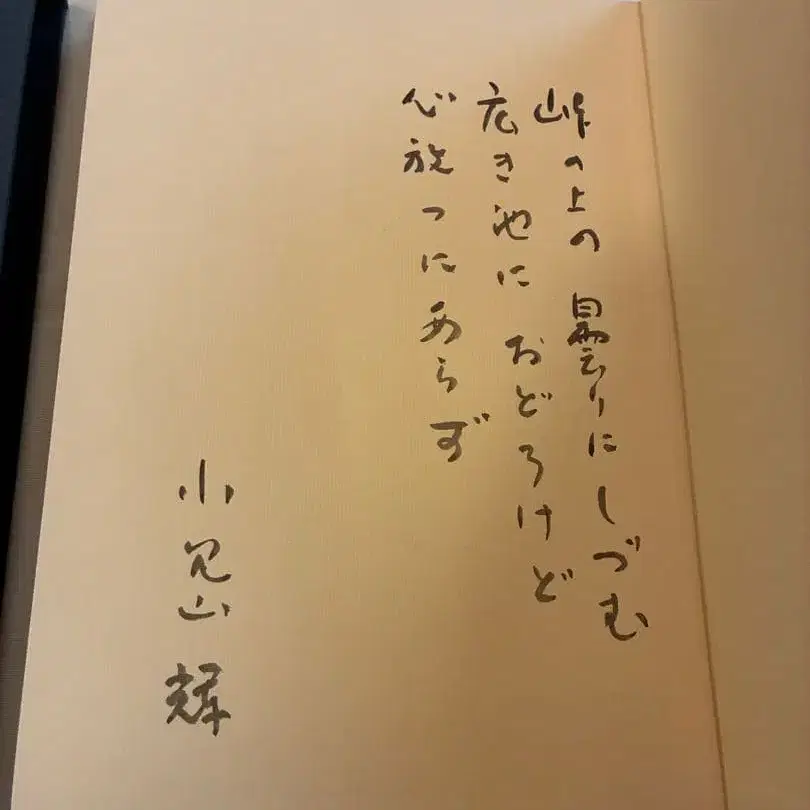 峠の上の 曇りにしづむ
広き池に おどろけど
心放つにあらず
小見山 輝